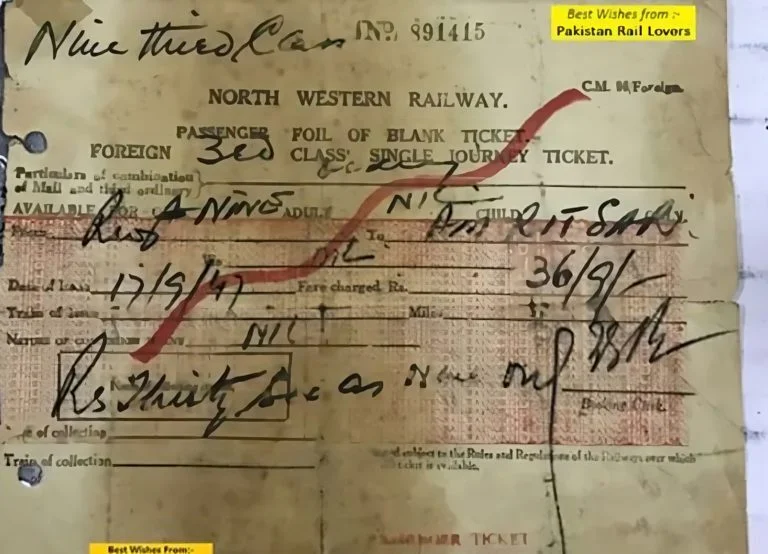 Best Wishes from :-
Pakistan Rail Lovers
Nine third Class No. 891415
C.M. 96/Foreign.
NORTH WESTERN RAILWAY.
PASSENGER FOIL OF BLANK TICKET.
FOREIGN 3rd CLASS SINGLE JOURNEY TICKET.
Particulars of combination
of Mail and third ordinary
AVAILABLE FOR NINE ADULT NIL CHILD
From To AMRITSAR
NIL
Date of Issue 17/9/47 Fare charged Rs. 36/9/-
Train of Issue Miles
NATURE OF NIL
Rs Thirty Six as Nine only
Booking Clerk.
of collection
Train of collection
subject to the Rules and Regulations of the Railways over which
ticket is available.
PASSENGER TICKET
Best Wishes From:-